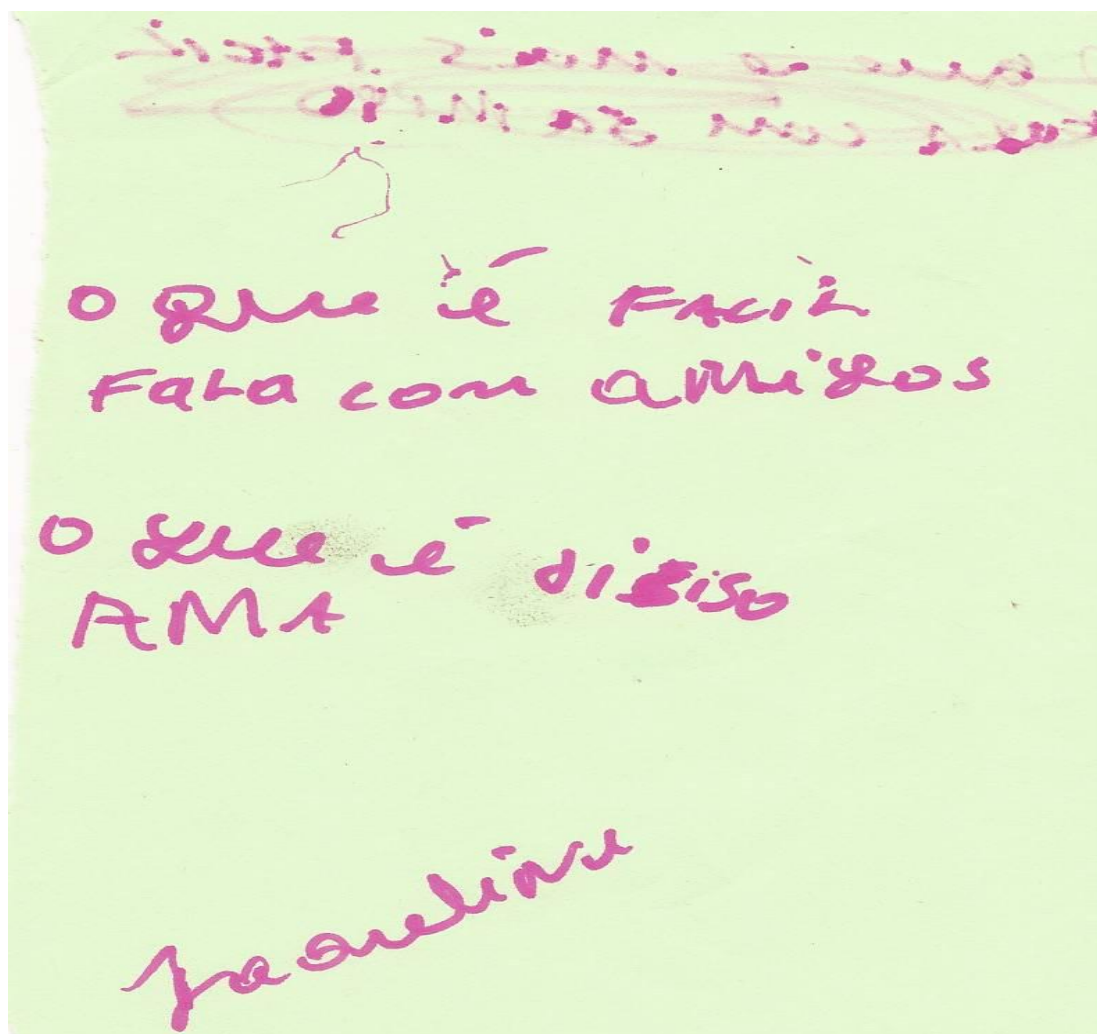 O que é FACiL
FaLa com aMigos
O que é difiso
AMA
Jaqueline